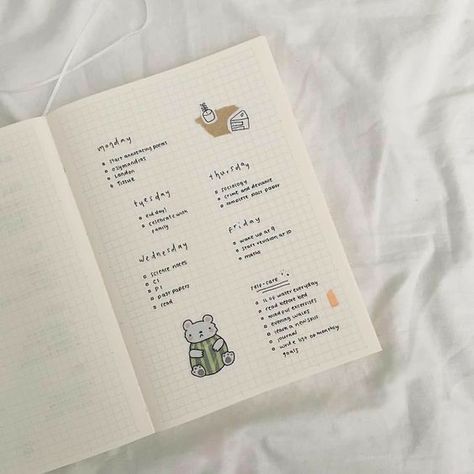 monday
start annotating poems
ozymandias
London
Tissue
tuesday
eid day!
celebrate with
family
wednesday
science notes
C1
P1
past papers
read
thursday
sociology
crime and deviance
complete past paper
friday
wake up at 9
start revision at 10
maths
self-care
2L of water everyday
read before bed
mindful exercises
evening walks
learn a new skill
journal
write list of monthly
goals